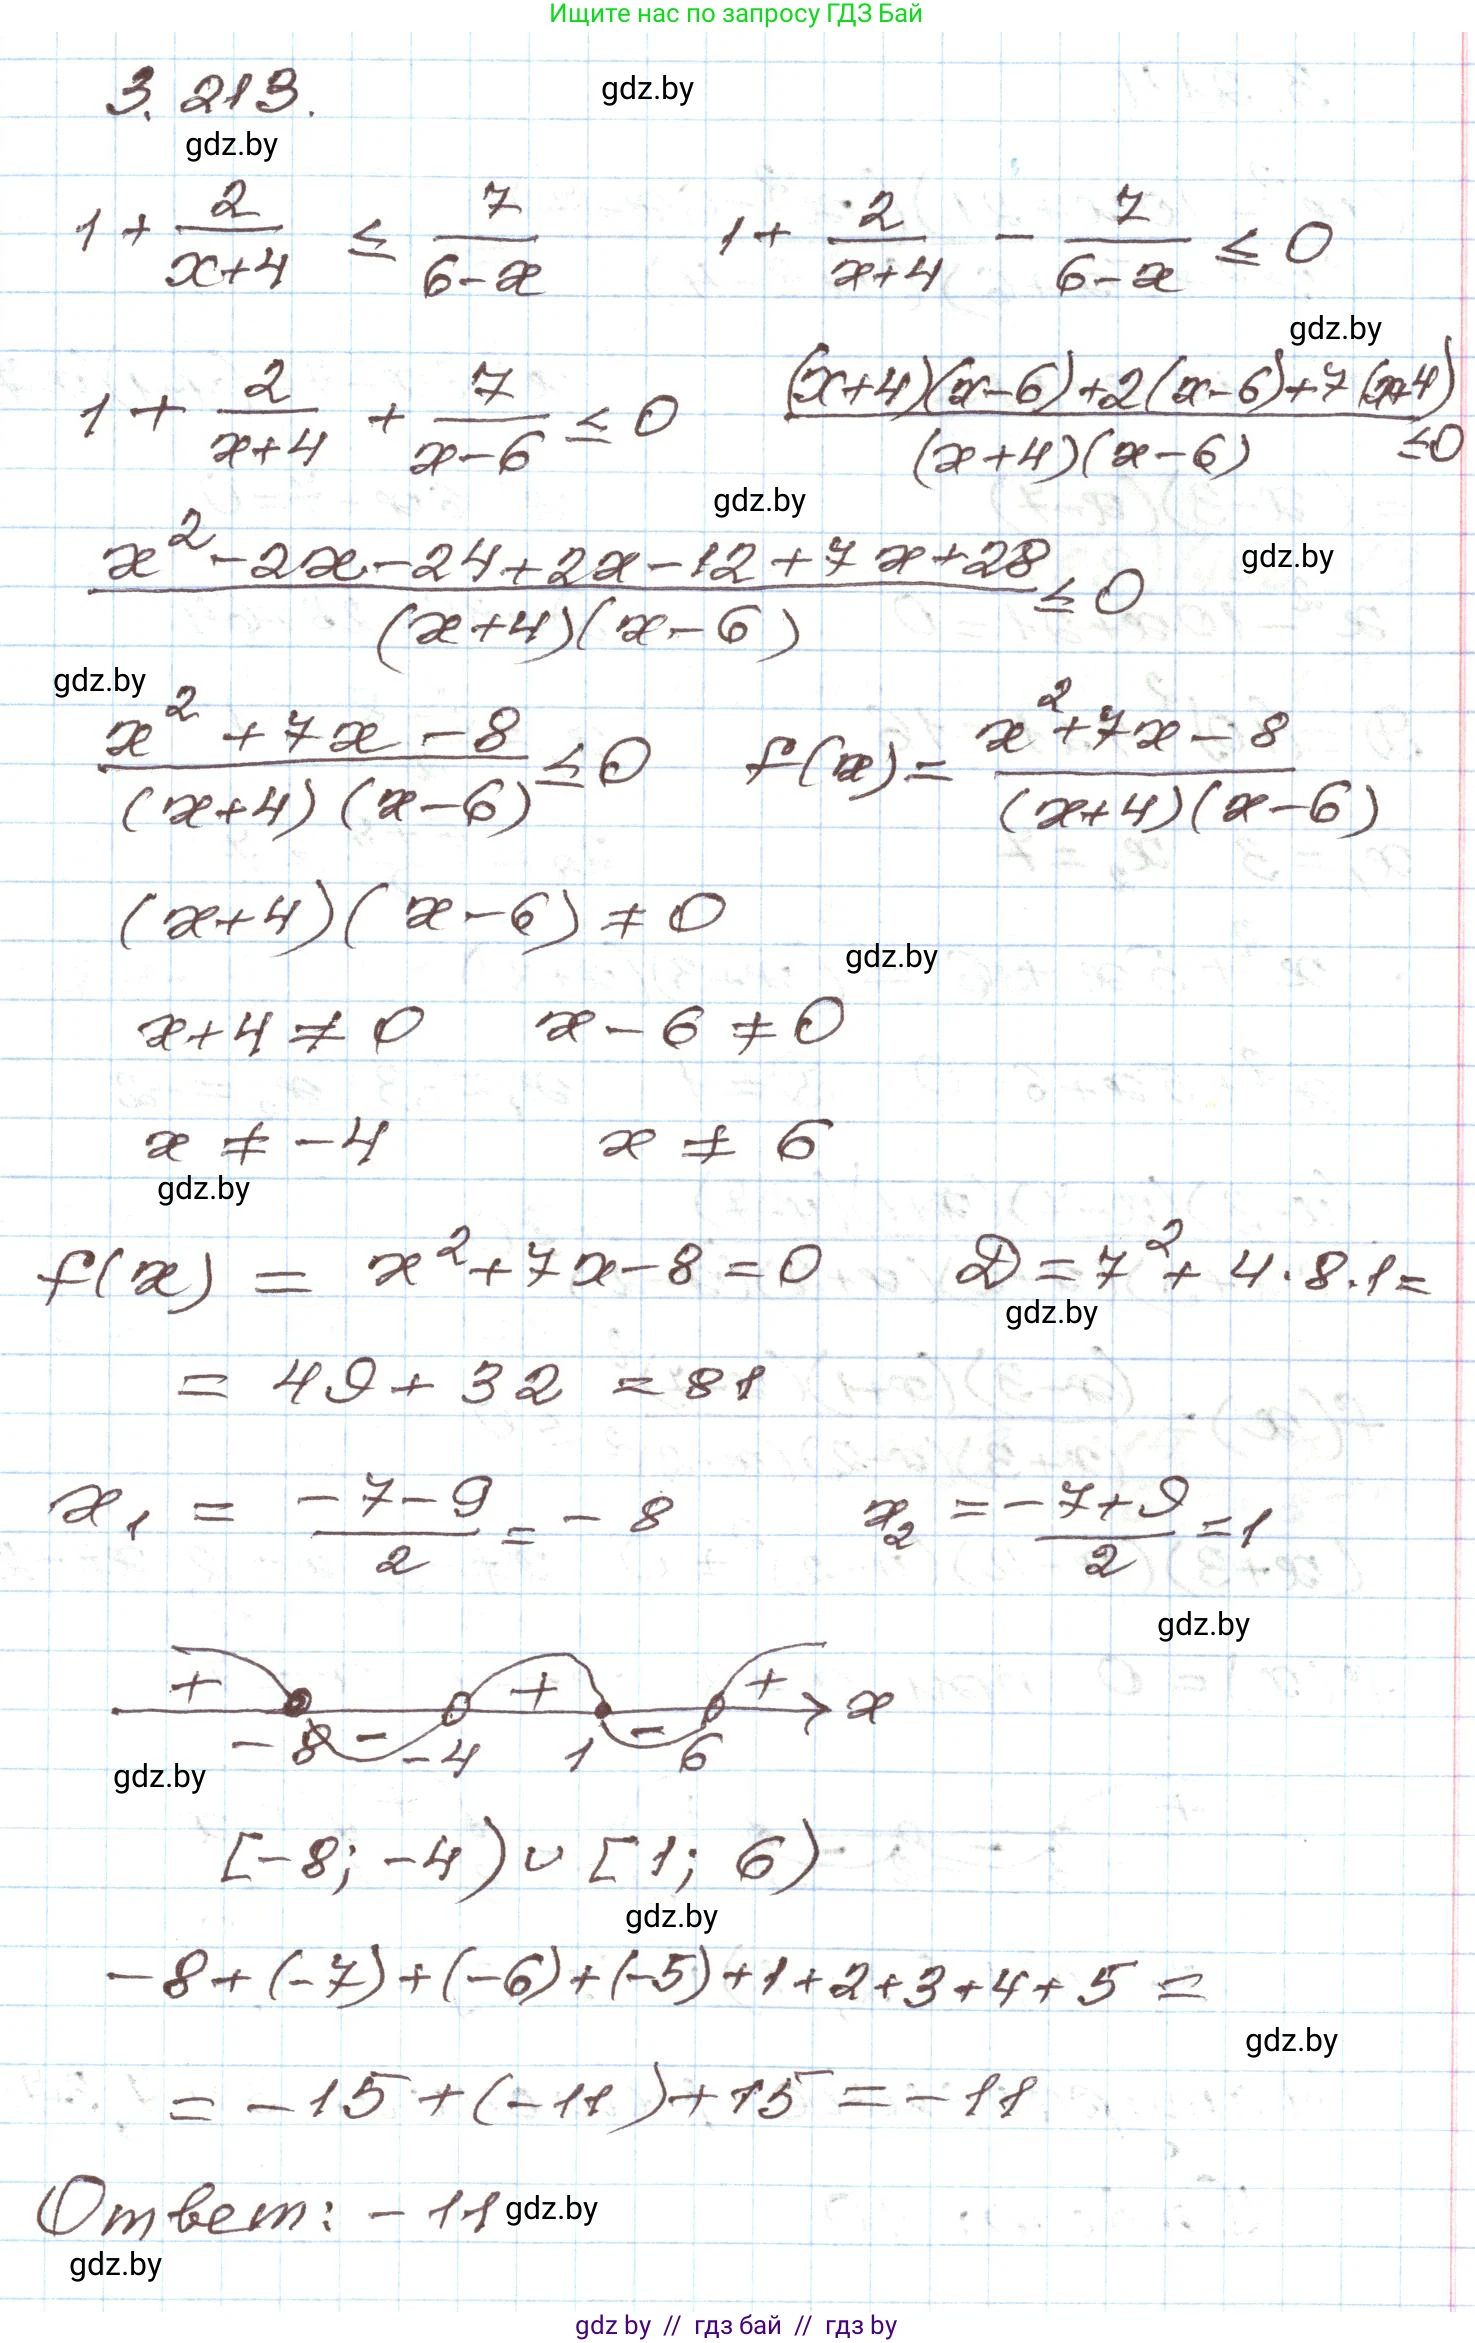 Ищите нас по запросу ГДЗ Бай
3.213.
gdz.by
gdz.by
1 + 2/(x+4) ≤ 7/(6-x) 1 + 2/(x+4) - 7/(6-x) ≤ 0
gdz.by
1 + 2/(x+4) + 7/(x-6) ≤ 0 ((x+4)(x-6)+2(x-6)+7(x+4))/((x+4)(x-6)) ≤0
gdz.by
(x²-2x-24+2x-12+7x+28)/((x+4)(x-6)) ≤ 0
gdz.by
gdz.by
(x²+7x-8)/((x+4)(x-6)) ≤ 0 f(x) = (x²+7x-8)/((x+4)(x-6))
(x+4)(x-6) ≠ 0
gdz.by
x+4 ≠ 0 x-6 ≠ 0
x ≠ -4 x ≠ 6
gdz.by
f(x) = x²+7x-8=0 D=7²+4·8·1=
gdz.by
= 49+32 = 81
x₁ = (-7-9)/2 = -8 x₂ = (-7+9)/2 = 1
gdz.by
+ + + x
-8 - -4 1 - 6
gdz.by
[-8; -4) ∪ [1; 6)
gdz.by
-8+(-7)+(-6)+(-5)+1+2+3+4+5=
gdz.by
= -15+(-11)+15 = -11
Ответ: -11
gdz.by
gdz.by
gdz by // гдз бай // гдз by